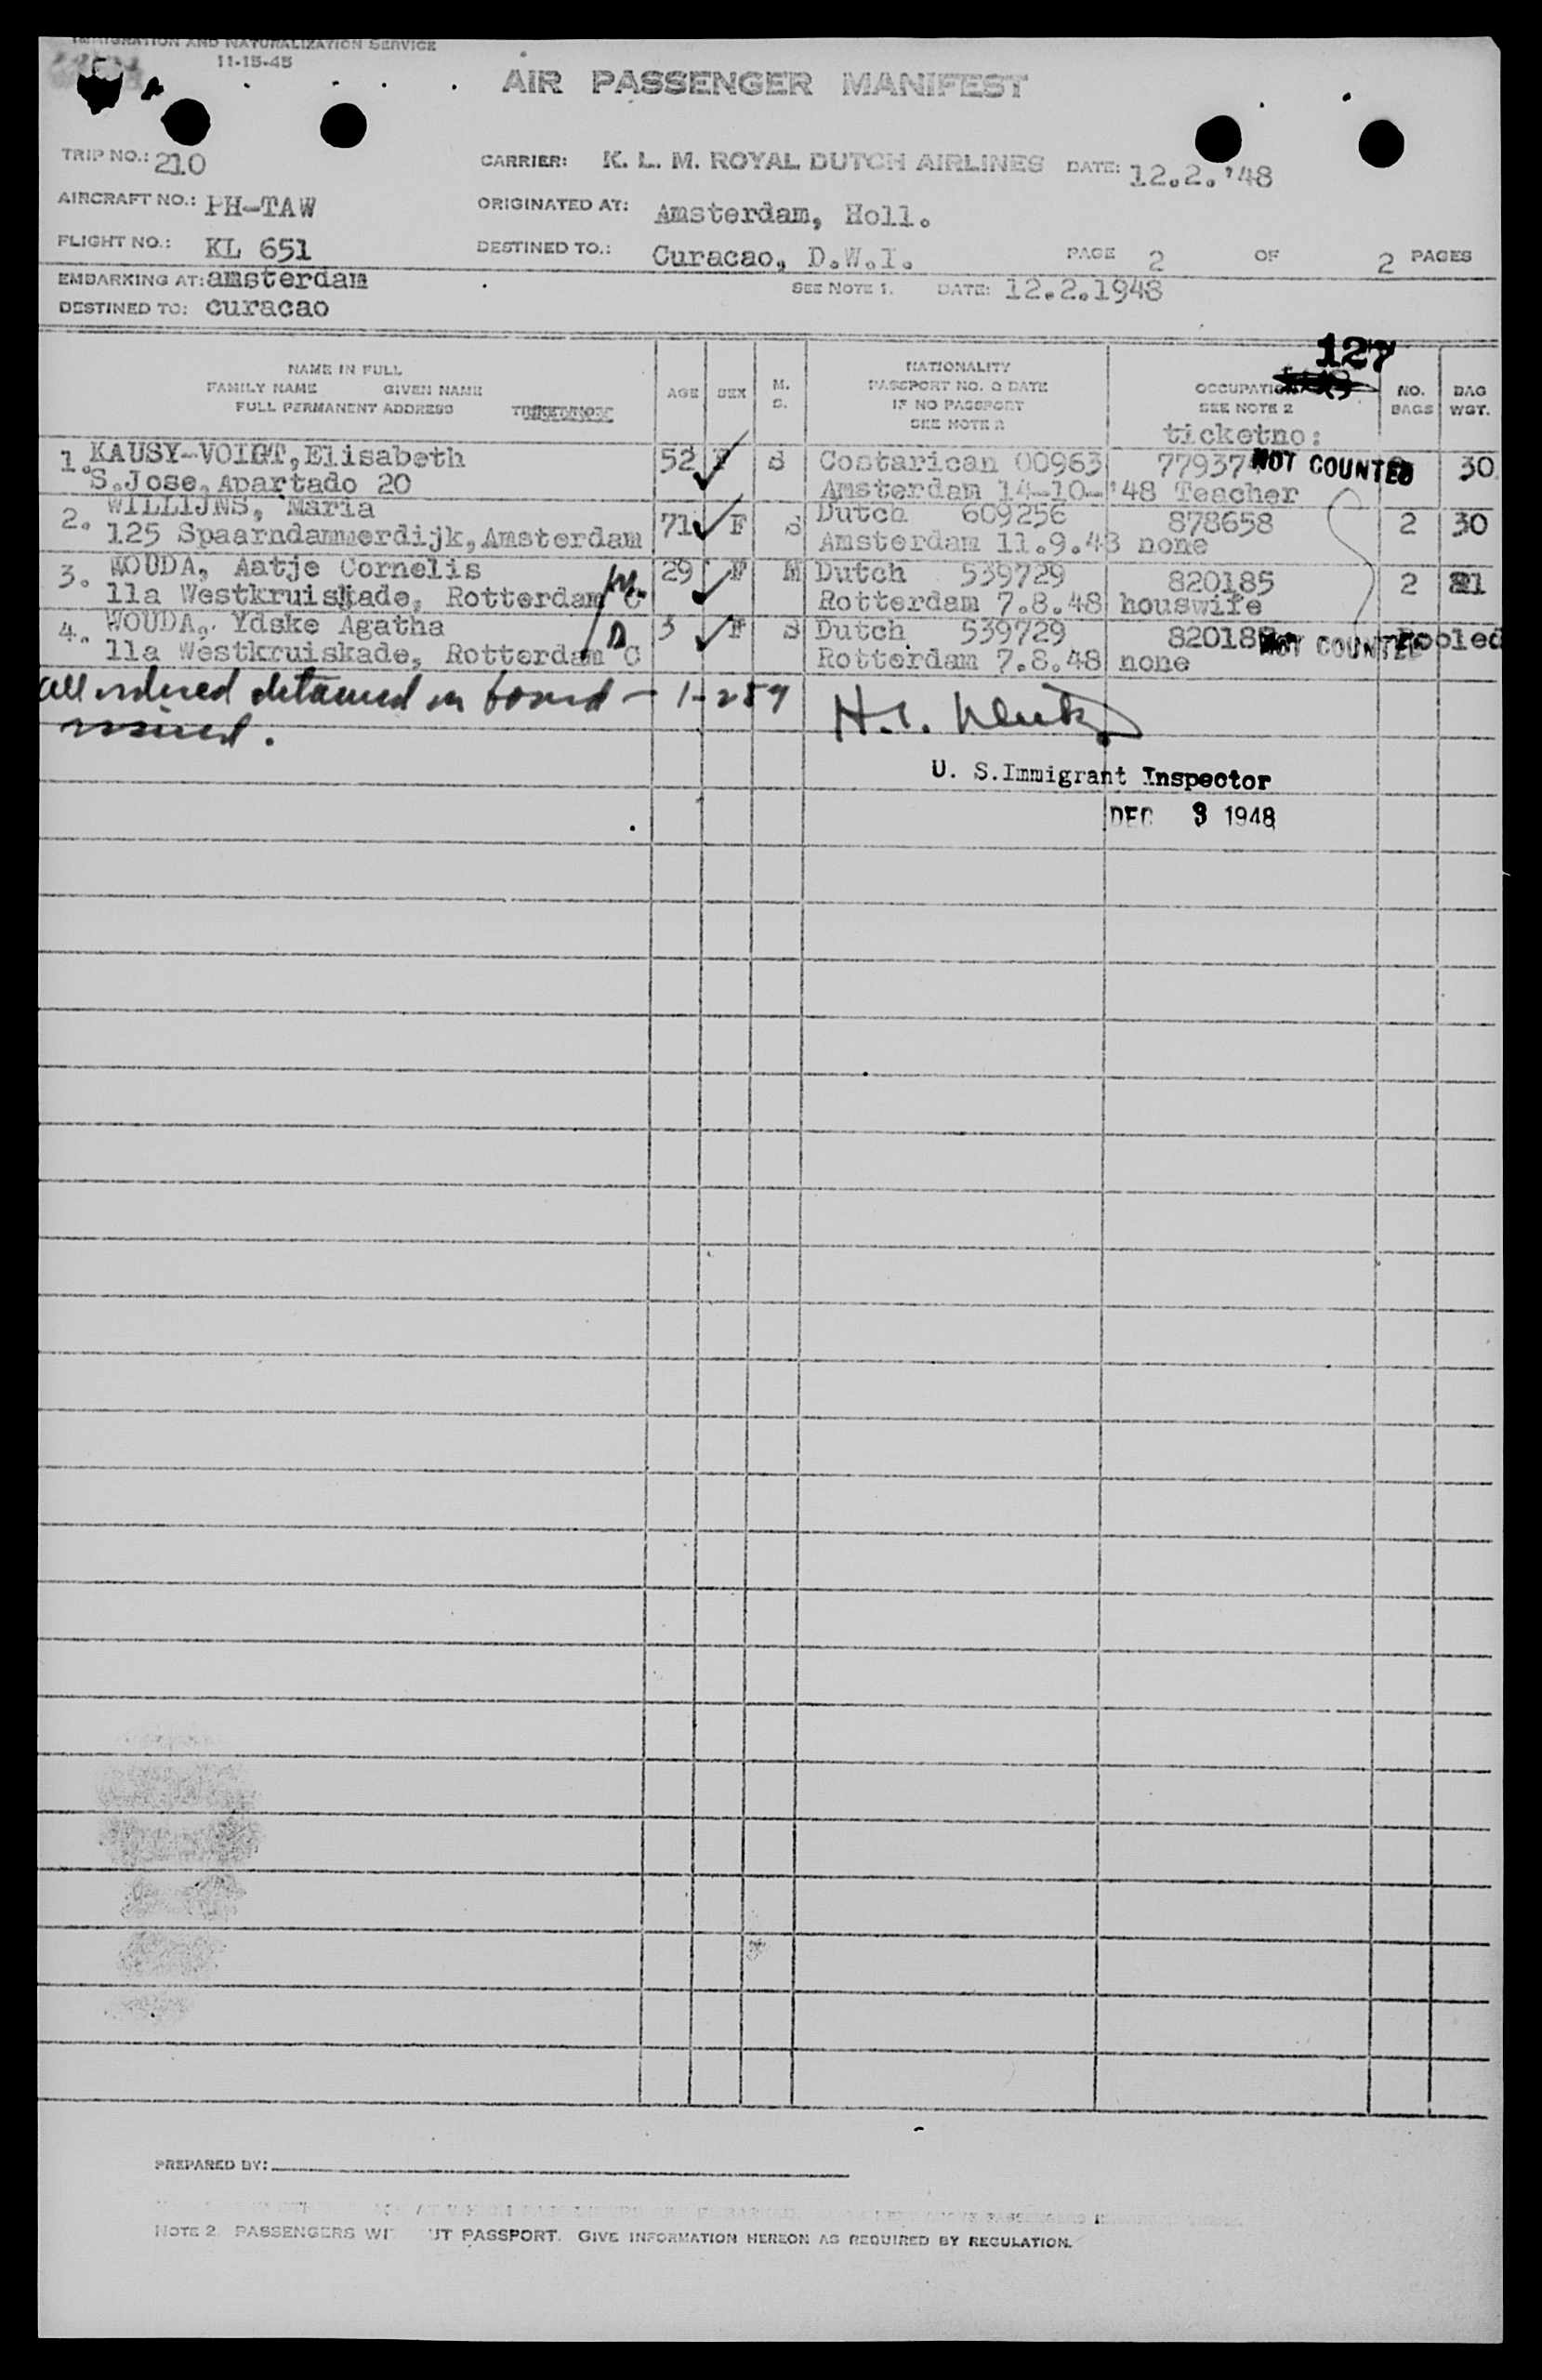 IMMIGRATION AND NATURALIZATION SERVICE
11-15-45
AIR PASSENGER MANIFEST
TRIP NO.: 210
CARRIER: K. L. M. ROYAL DUTCH AIRLINES DATE: 12.2.'48
AIRCRAFT NO.: PH-TAW
ORIGINATED AT: Amsterdam, Holl.
FLIGHT NO.: KL 651
DESTINED TO.: Curacao, D.W.I. PAGE 2 OF 2 PAGES
EMBARKING AT: amsterdam
SEE NOTE 1. DATE: 12.2.1948
DESTINED TO: curacao
127
NAME IN FULL
FAMILY NAME GIVEN NAME
FULL PERMANENT ADDRESS
AGE SEX M. S.
NATIONALITY
PASSPORT NO. & DATE
IF NO PASSPORT
SEE NOTE 2
OCCUPATION
SEE NOTE 2
NO. BAGS
BAG WGT.
ticketno:
1. KAUSY-VOIGT, Elisabeth 52 F S Costarican 00963 77937 NOT COUNTED 30
S.Jose, Apartado 20 Amsterdam 14-10-'48 Teacher
2. WILLIJNS, Maria 71 F S Dutch 609256 878658 2 30
125 Spaarndammerdijk, Amsterdam Amsterdam 11.9.48 none
3. WOUDA, Aatje Cornelis M. 29 F M Dutch 539729 820185 2 21
11a Westkruiskade, Rotterdam C Rotterdam 7.8.48 houswife
4. WOUDA, Ydske Agatha D 3 F S Dutch 539729 82018 NOT COUNTED Pooled
11a Westkruiskade, Rotterdam C Rotterdam 7.8.48 none
All ordered detained on board - I-259
issued.
U. S. Immigrant Inspector
DEC 3 1948
PREPARED BY:
NOTE 2. PASSENGERS WI UT PASSPORT. GIVE INFORMATION HEREON AS REQUIRED BY REGULATION.